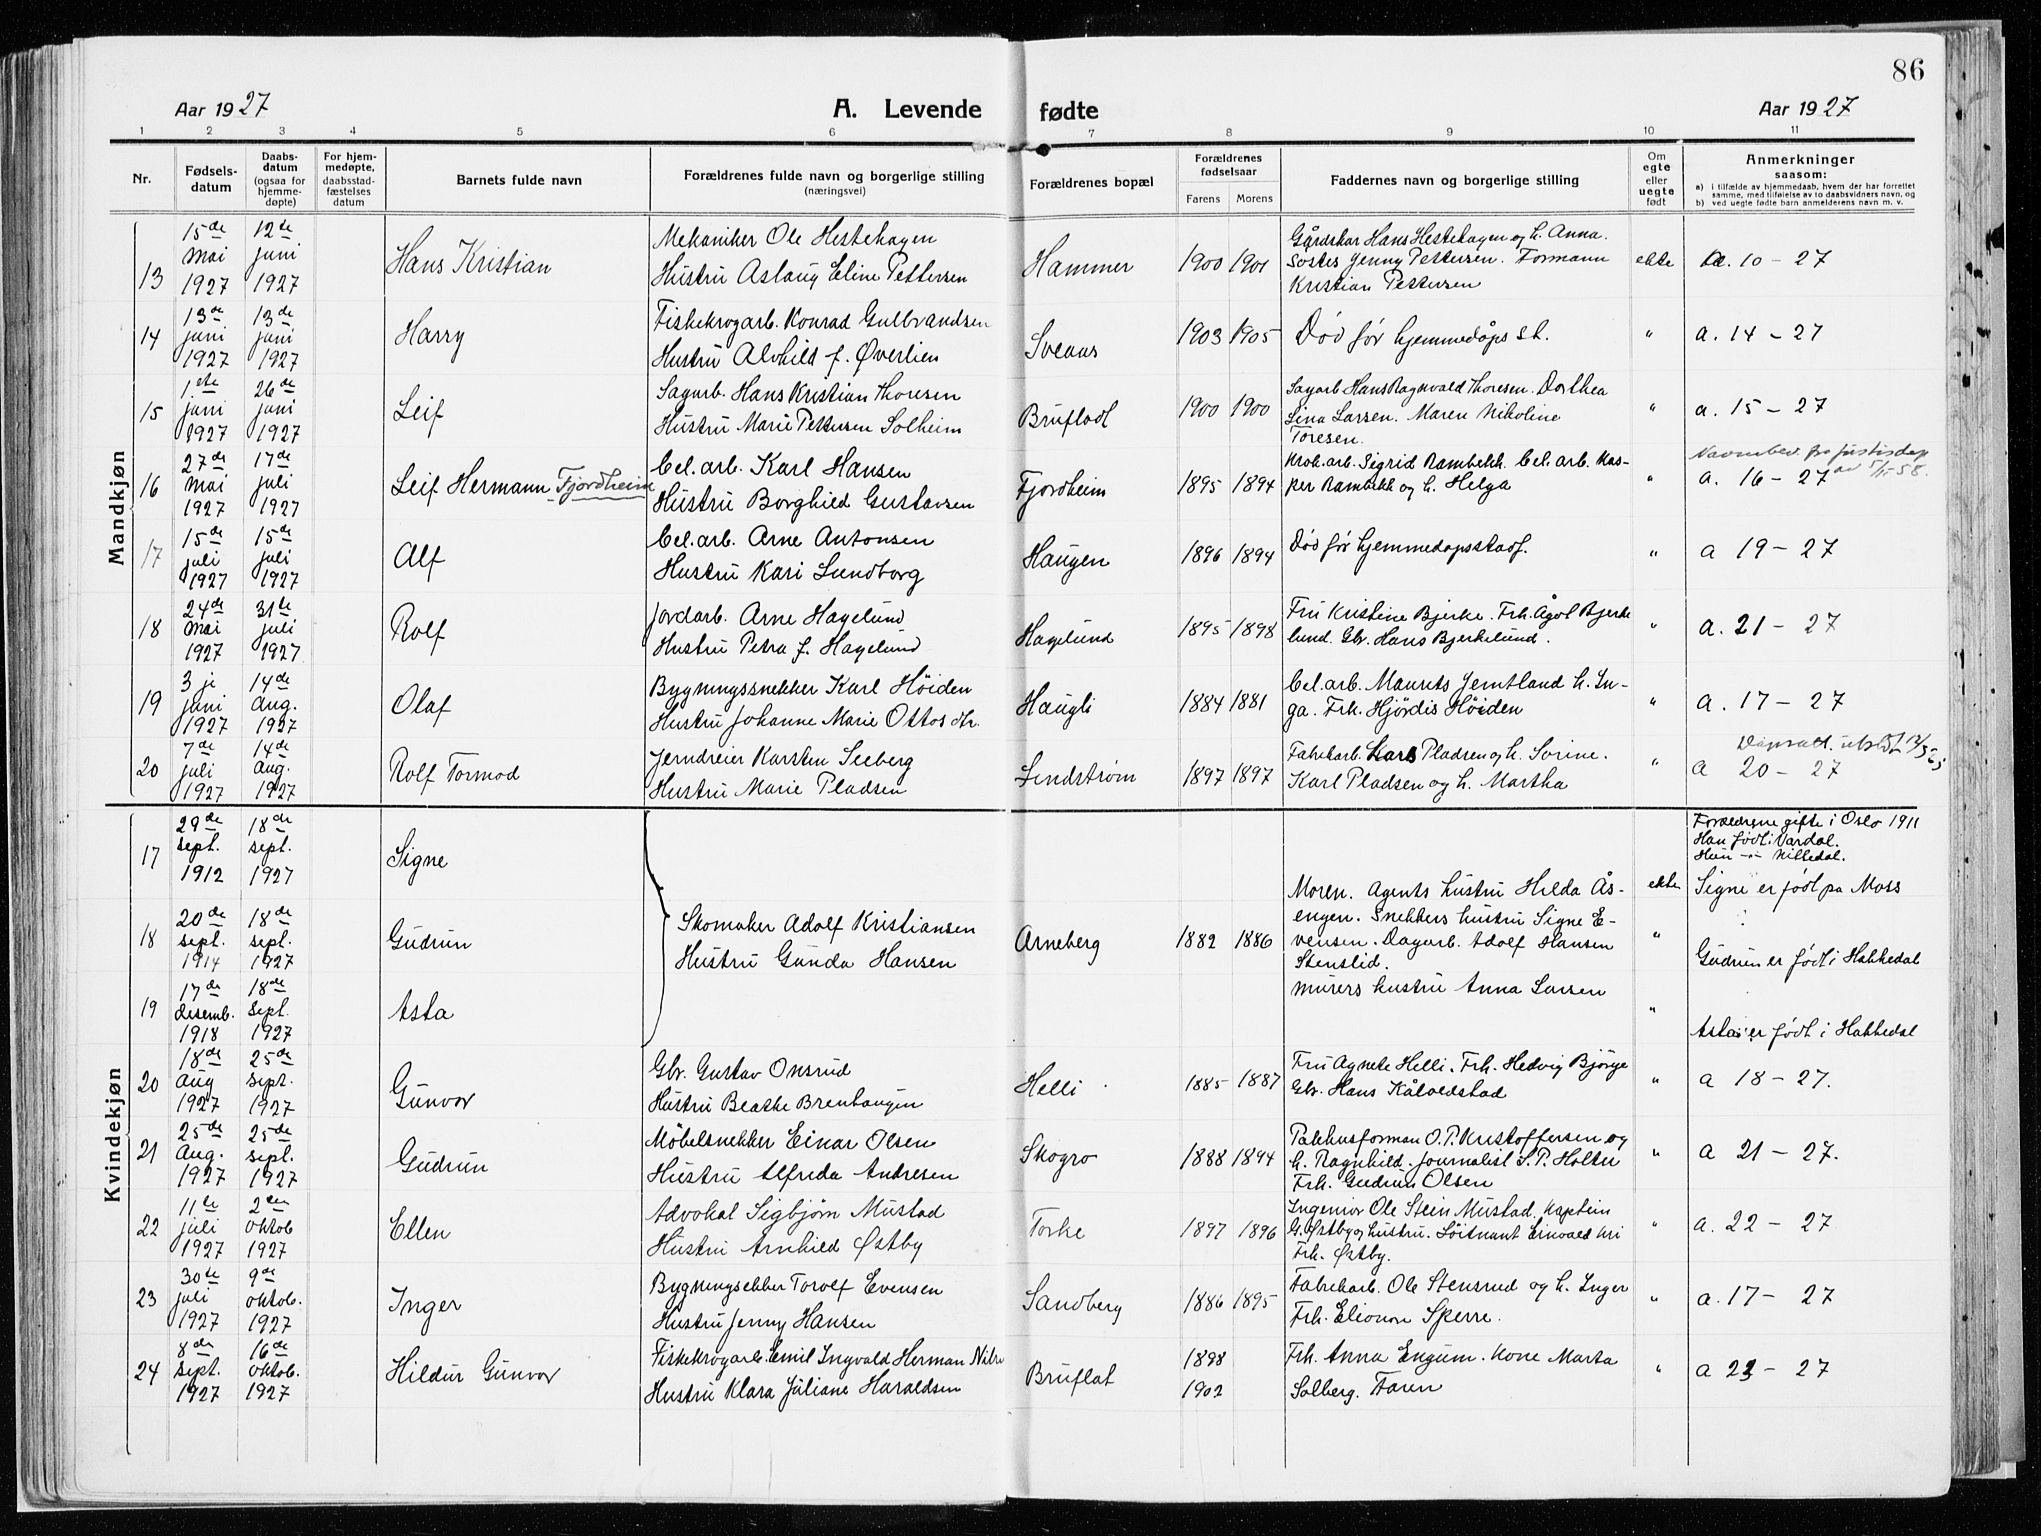 86
Aar 1927
A. Levende fødte
Aar 1927
1 2 3 4 5 6 7 8 9 10 11
Nr.
Fødsels-
datum
Daabs-
datum
(ogsaa for
hjemme-
døpte)
For hjem-
medøpte,
daabsstad-
fæstelses
datum
Barnets fulde navn
Forældrenes fulde navn og borgerlige stilling
(næringsvei)
Forældrenes bopæl
Forældrenes
fødselsaar
Farens Morens
Faddernes navn og borgerlige stilling
Om
egte
eller
uegte
født
Anmerkninger
saasom:
a) i tilfælde av hjemmedaab, hvem der har forrettet
samme, med tilføielse av to daabsvidners navn, og
b) ved uegte fødte barn anmelderens navn m. v.
Mandkjøn
13
15de
Mai
1927
12te
juni
1927
Hans Kristian
Mekaniker Ole Hestehagen
Hustru Aslaug Eline Pettersen
Hammer
1900 1901
Gårdskar Hans Hestehagen og h. Anna.
Søster Jenny Pettersen. Formann
Kristian Pettersen
ekte
a. 10 - 27
14
13de
juni
1927
13de
juni
1927
Harry
Fiskekrogarb. Konrad Gulbrandsen
Hustru Alvhild f. Øverlien
Sveaas
1903 1905
Død før hjemmedåps st.
"
a. 14 - 27
15
1.ste
juni
1927
26de
juni
1927
Leif
Sagarb. Hans Kristian Thoresen
Hustru Marie Pettersen Solheim
Bruflodt
1900 1900
Sagarb Hans Ragnvald Thoresen. Dorthea
Lina Larsen. Maren Nikoline
Toresen.
"
a. 15 - 27
16
27de
Mai
1927
17de
juli
1927
Leif Hermann Fjordheim
Cel. arb. Karl Hansen
Hustru Borghild Gustavsen
Fjordheim
1895 1894
Krok.arb. Sigrid Rambekk. Cel. arb. Kas-
per Rambekk og h. Helga
"
Navnebev. fra justisdep
av 5/11 58.
a. 16 - 27
17
15de
juli
1927
15de
juli
1927
Alf
Cel. arb. Arne Antonsen
Hustru Kari Lundborg
Haugen
1896 1894
Død før hjemmedapsstadf.
"
a 19 - 27
18
24de
Mai
1927
31te
juli
1927
Rolf
Jordarb. Arne Hagelund
Hustru Petra f. Hagelund
Hagelund
1895 1898
Fru Kristine Bjerke. Frk. Ågot Bjerke
lund. Gbr. Hans Bjerkelund.
"
a. 21 - 27
19
3 je
juni
1927
14de
Aug.
1927
Olaf
Bygningssnekker Karl Høiden
Hustru Johanne Marie Ottosdtr.
Haugli
1884 1881
Cel. arb. Maurits Jemtland h. In-
ga. Frk. Hjørdis Høiden
"
a. 17 - 27
20
7de
juli
1927
14de
Aug.
1927
Rolf Tormod
Jerndreier Karsten Seeberg
Hustru Marie Pladsen
Lindstrøm
1897 1897
Fabrikarb. Lars Pladsen og h. Sorine.
Karl Pladsen og h. Martha
"
Dåpsatt. utstedt
a 20 - 27
Kvindekjøn
17
29de
sept.
1912
18de
sept.
1927
Signe
ekte
Forældrene gifte i Oslo 1911
Han født i Vardal.
Hun -"- Nittedal.
Signe er født på Moss
18
20de
sept.
1914
18de
sept.
1927
Gudrun
Skomaker Adolf Kristiansen
Hustru Gunda Hansen
Arneberg
1882 1886
Moren. Agents hustru Hilda Ås-
engen. Snekkers hustru Signe E-
vensen. Dagarb. Adolf Hansen
Stenslid.
Murers hustru Anna Larsen
"
Gudrun er født i Hakkedal
19
17de
Desemb.
1918
18de
Sept.
1927
Asta
"
Asta er født i Hakkedal
20
18de
Aug
1927
25de
Sept.
1927
Gunvor
Gbr. Gustav Onsrud
Hustru Beathe Brenhaugen
Helli
1885 1887
Fru Agnete Helli. Frk. Hedvig Bjørge
Gbr. Hans Kålvedstad
"
a 18 - 27.
21
25de
Aug.
1927
25de
sept.
1927
Gudrun
Møbelsnekker Einar Olsen
Hustru Alfrida Andresen
Skogro
1888 1894
Pakhusforman O. P. Kristoffersen og
h. Ragnhild. Journalist S. P. Holter
Frk. Gudrun Olsen
"
a 21 - 27.
22
11te
juli
1927
2den
Oktob
1927
Ellen
Advokat Sigbjørn Mustad
Hustru Arnhild Østby
Torke
1897 1896
Ingeniør Ole Stein Mustad. Kaptein
G. Østby og hustru. Løitnant
Frk. Østby.
"
a. 22 - 27
23
30te
juli
1927
9de
oktob.
1927
Inger
Torolf Evensen
Hustru Jenny Hansen
Sandberg
1886 1895
Fabrikarb. Ole Stensrud og h. Inger
Frk. Elionor Sperre.
"
a. 17 - 27
24
8de
sept.
1927
16de
oktob.
1927
Hildur Gunvor
Fiskekrogarb. Emil Ingvald Herman
Hustru Klara Juliane Haraldsen
Bruflat
1898
1902
Frk. Anna Engum. Kone Marta
Solberg. Faren
"
a 23 - 27